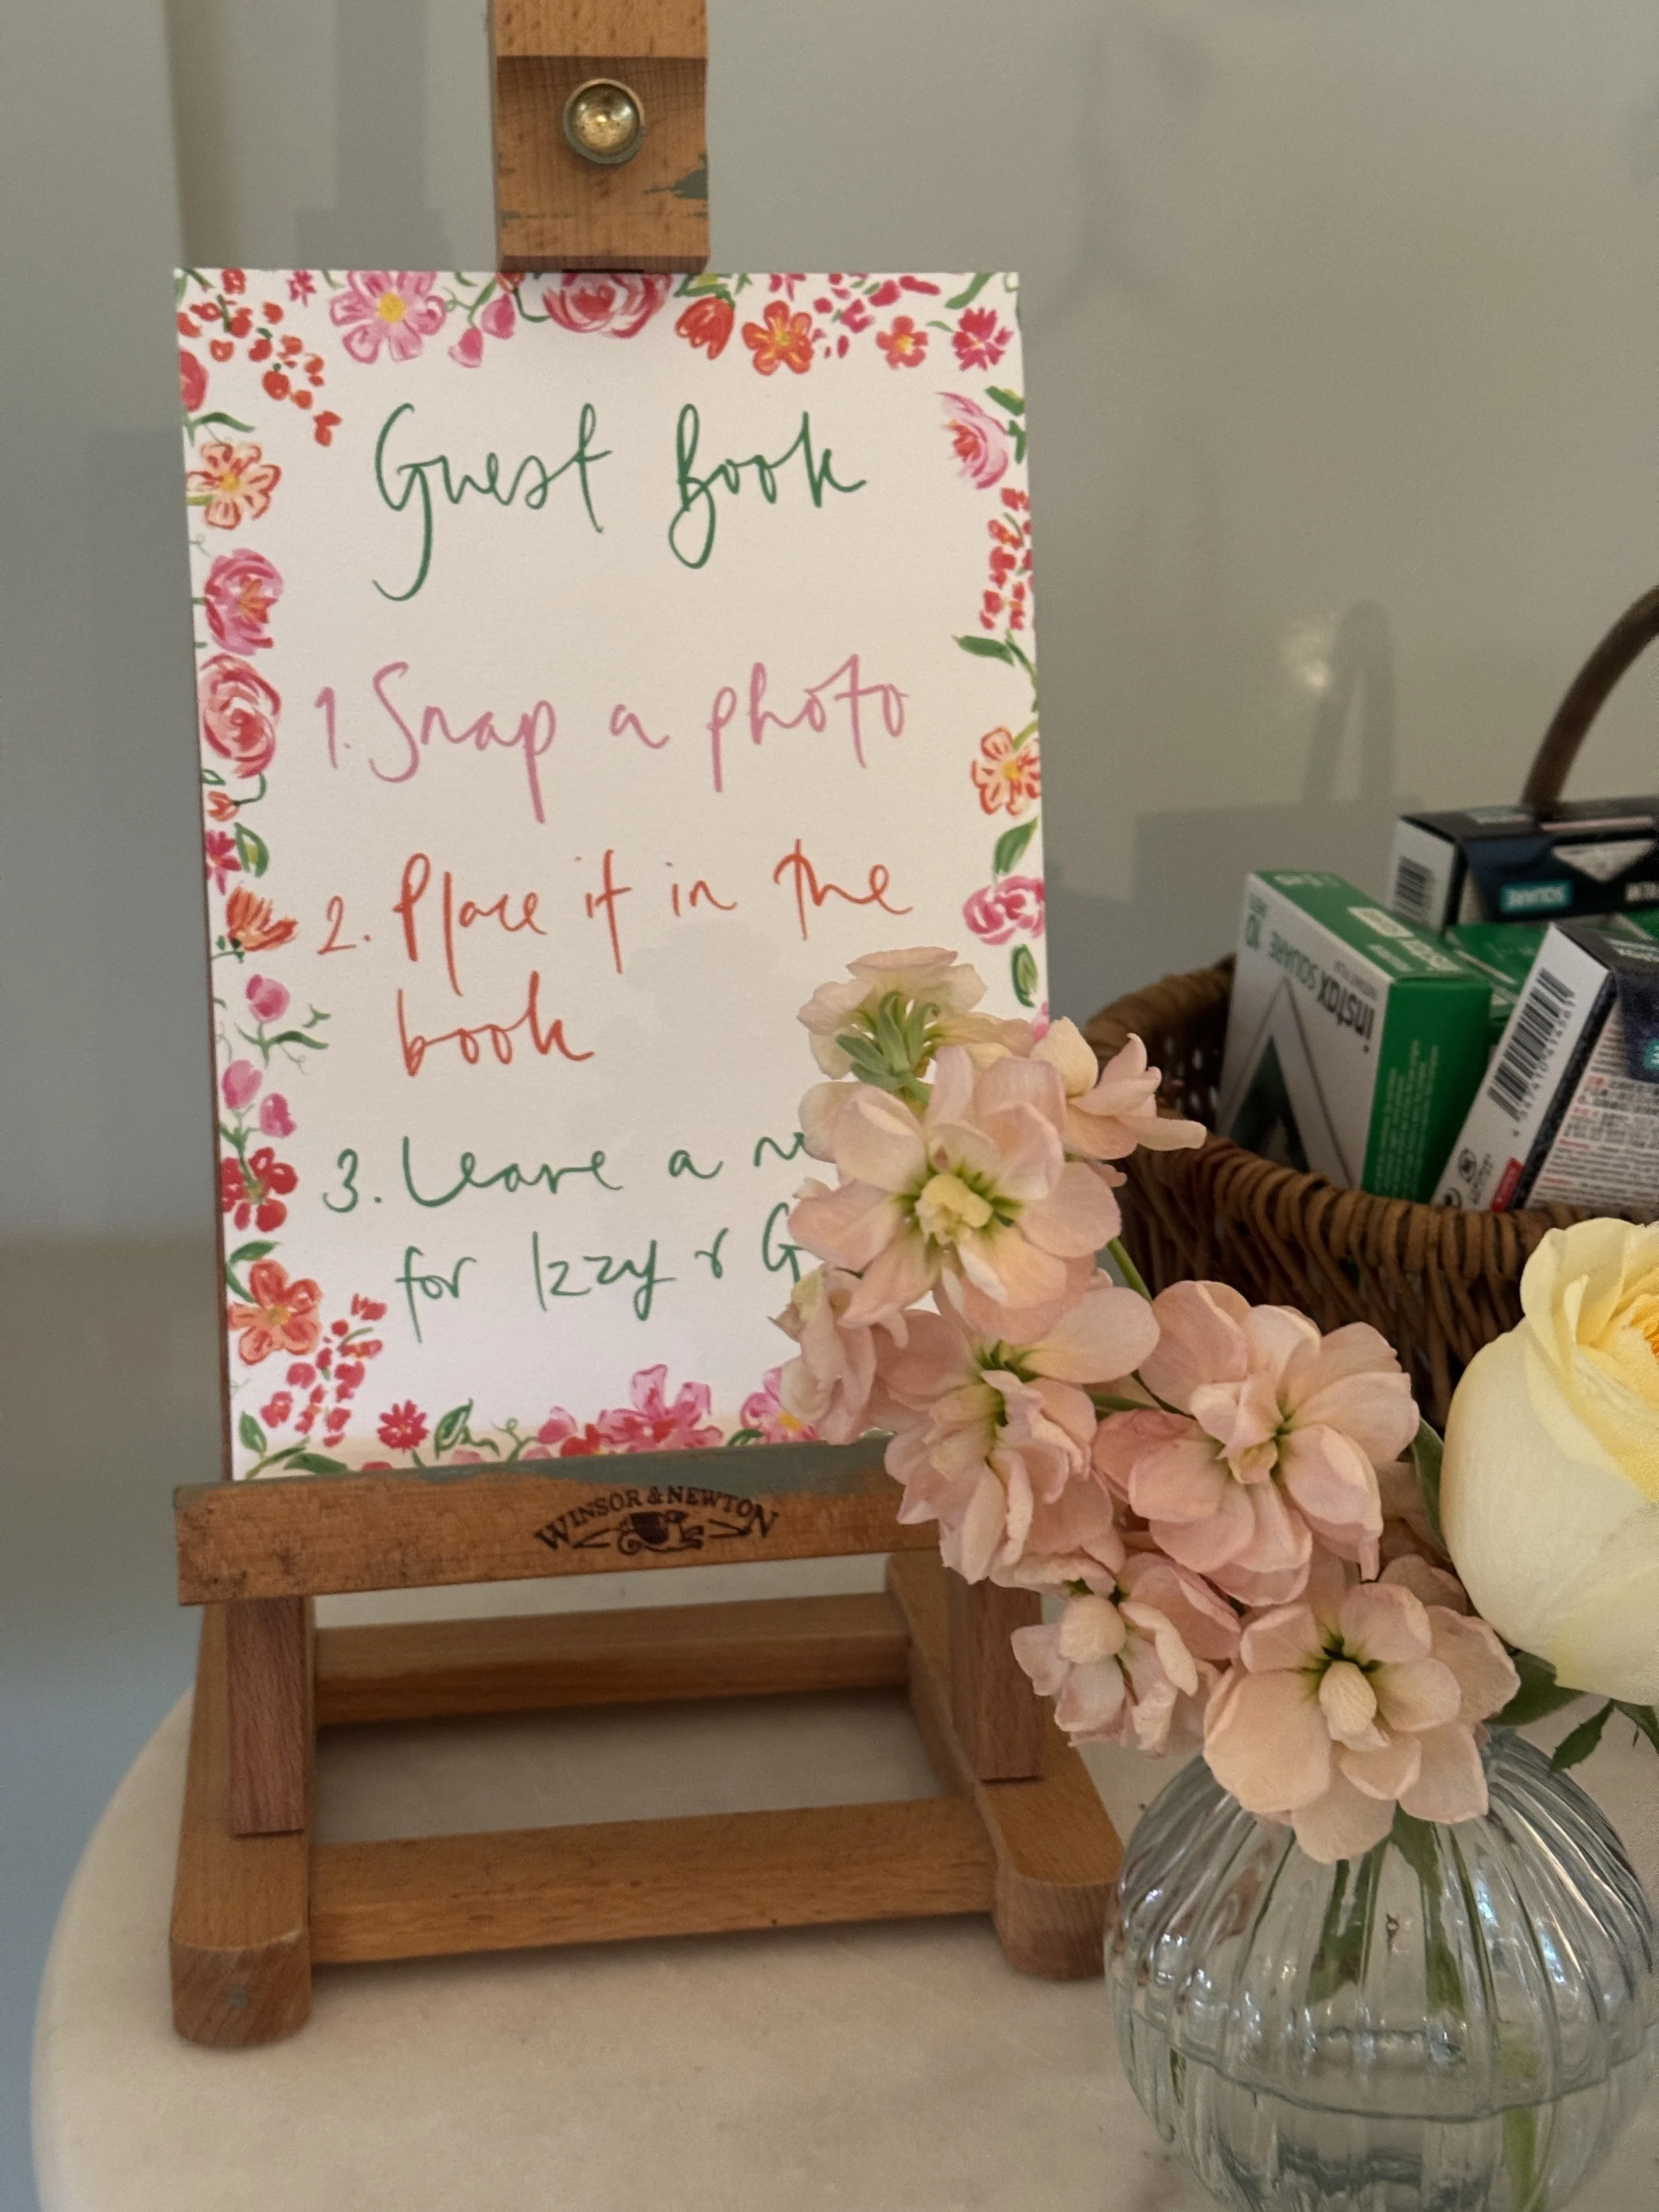 Guest Book
1. Snap a photo
2. Place it in the
book
3. Leave a
for Izzy &
WINSOR & NEWTON
instax SQUARE
10
SQUARE